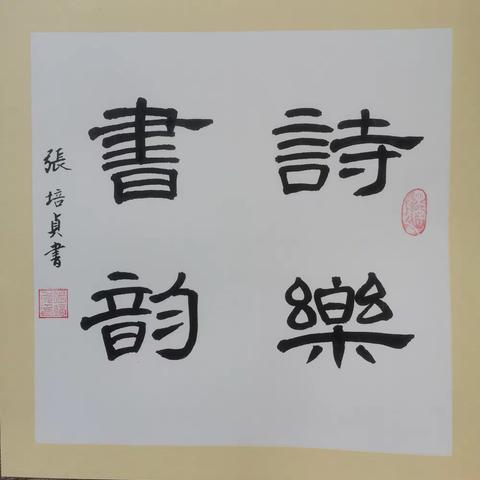 詩樂
書韵
張培貞書